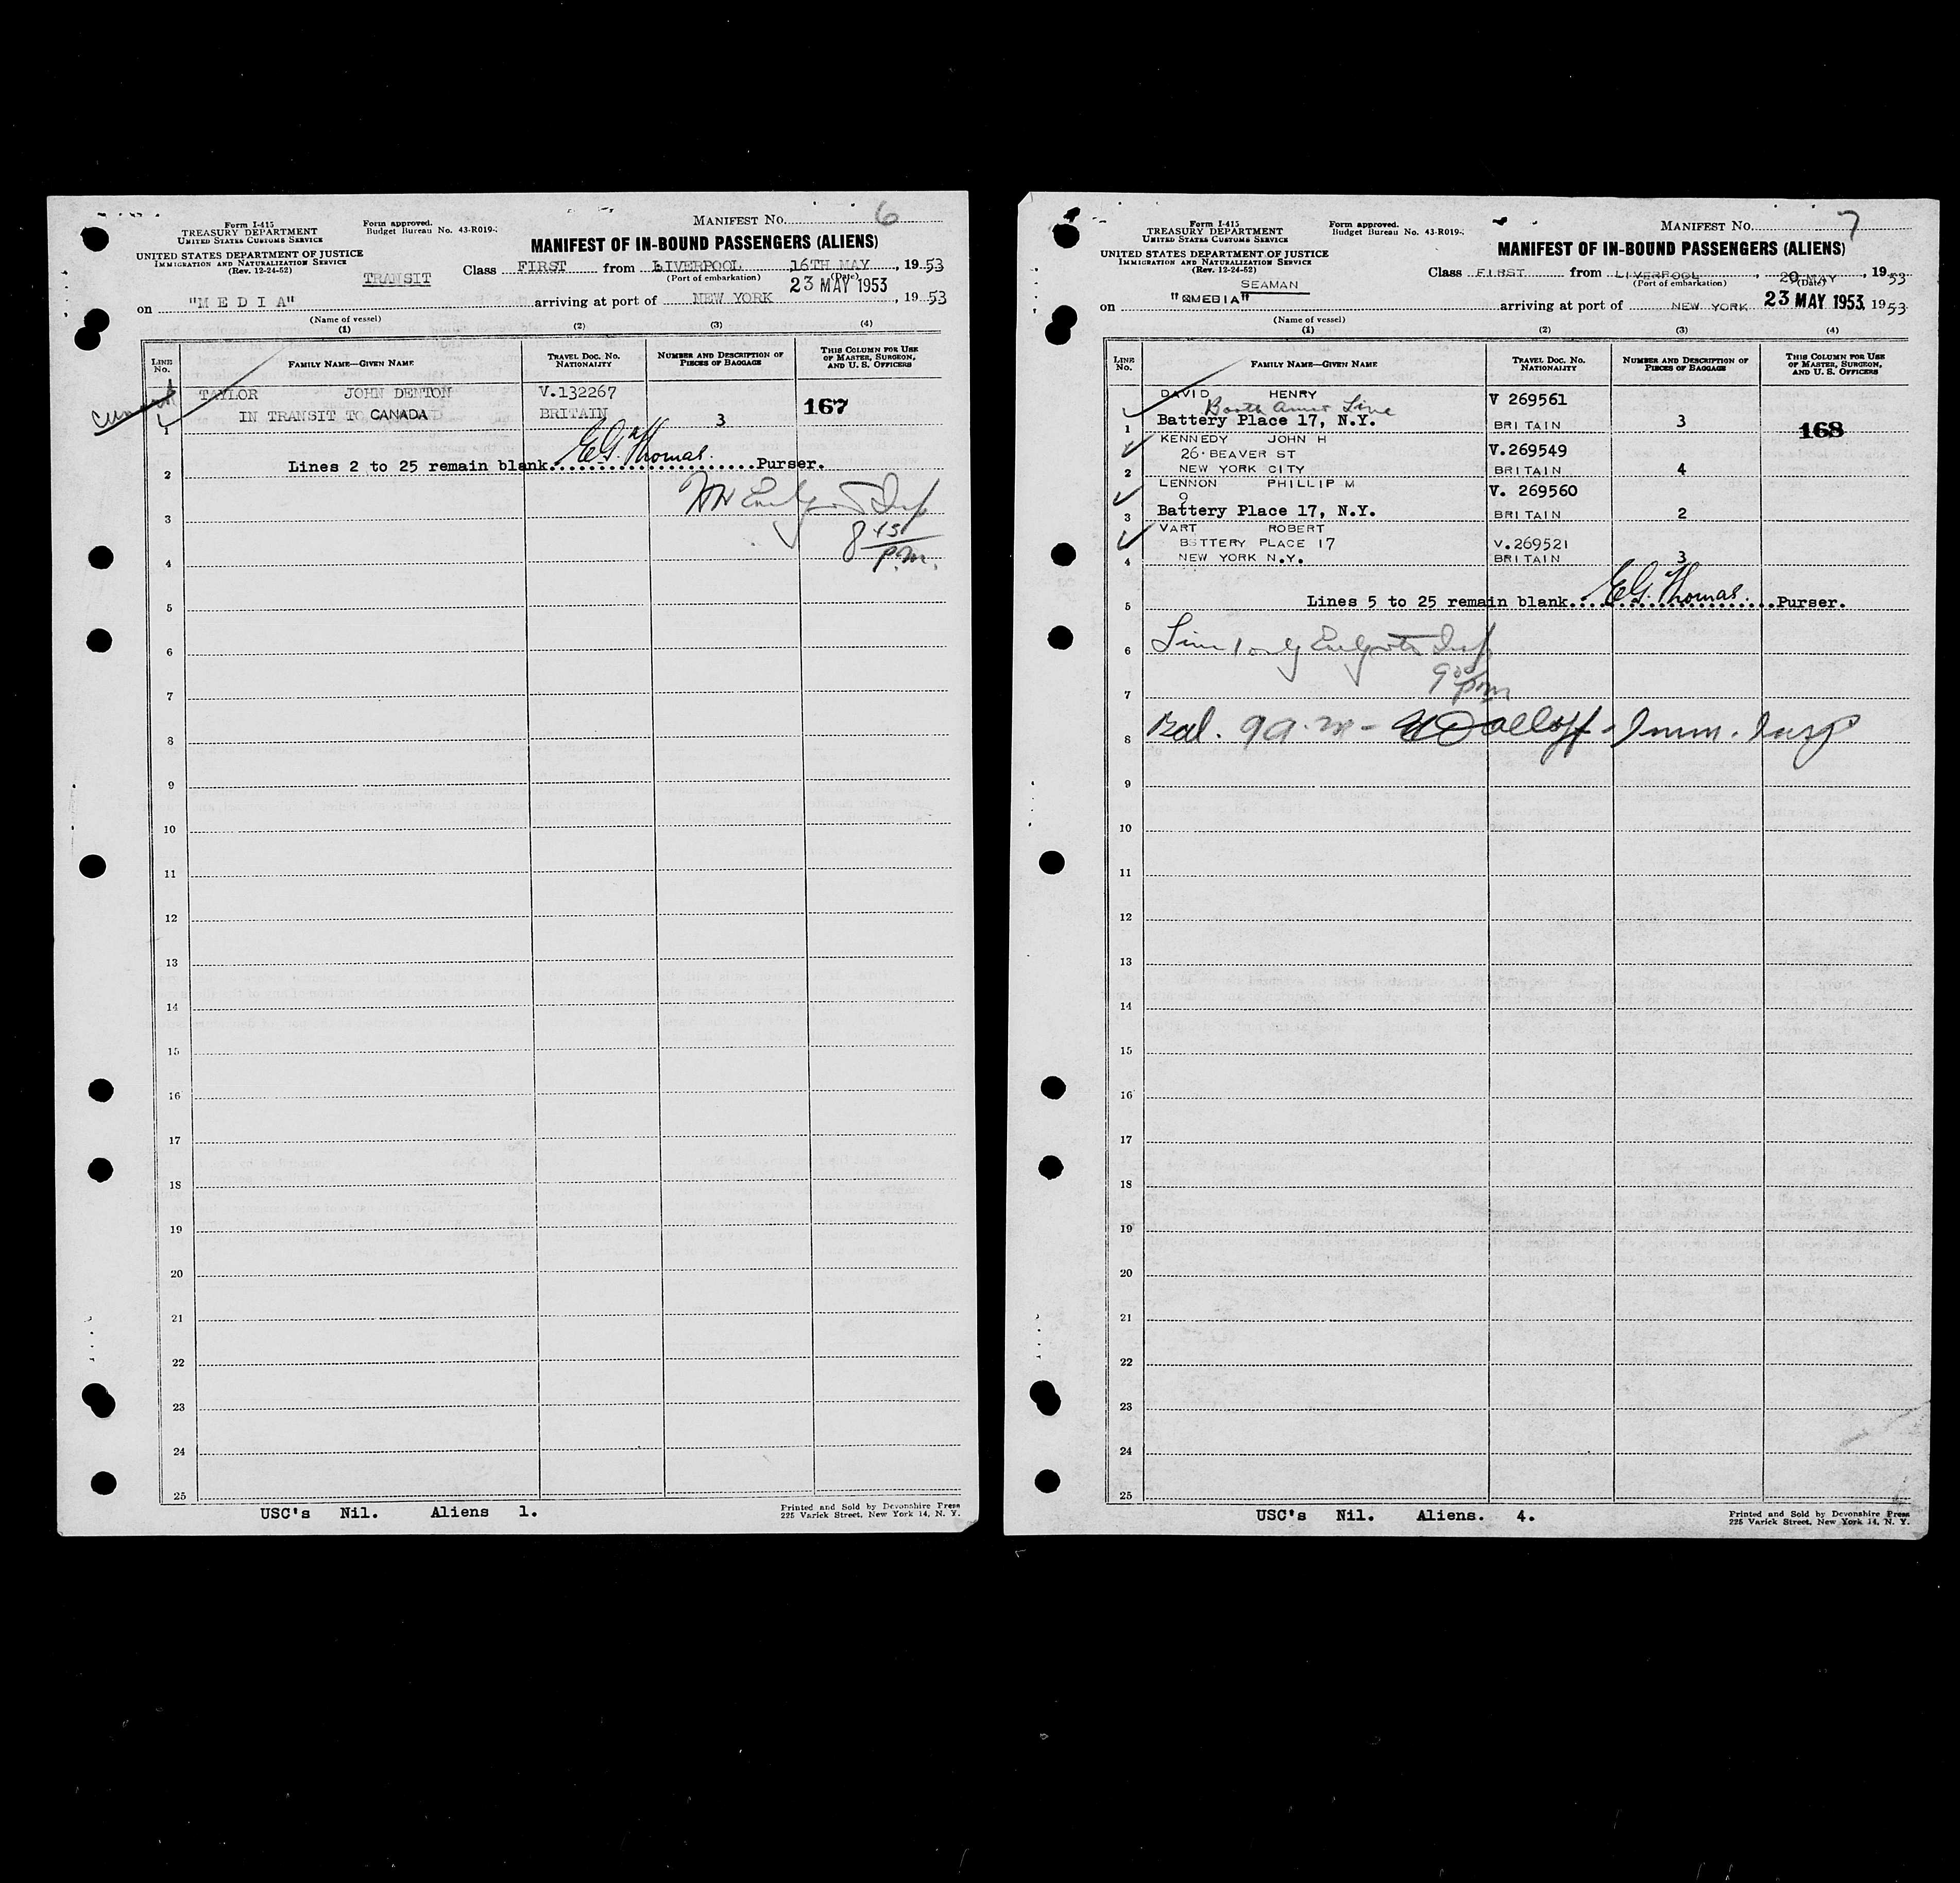 Form I-415
TREASURY DEPARTMENT
UNITED STATES CUSTOMS SERVICE
UNITED STATES DEPARTMENT OF JUSTICE
IMMIGRATION AND NATURALIZATION SERVICE
(Rev. 12-24-52)
Form approved.
Budget Bureau No. 43-R019-
MANIFEST No. 6
MANIFEST OF IN-BOUND PASSENGERS (ALIENS)
TRANSIT
Class FIRST from LIVERPOOL, 16TH MAY, 1953
(Port of embarkation) (Date)
23 MAY 1953
on "M E D I A" arriving at port of NEW YORK, 1953
(Name of vessel)
(1) (2) (3) (4)
LINE No. FAMILY NAME—GIVEN NAME TRAVEL DOC. No. NATIONALITY NUMBER AND DESCRIPTION OF PIECES OF BAGGAGE THIS COLUMN FOR USE OF MASTER, SURGEON, AND U. S. OFFICERS
TAYLOR JOHN DENTON V.132267
IN TRANSIT TO CANADA BRITAIN 3 167
1
E.G. Thomas
2 Lines 2 to 25 remain blank Purser.
3
8 45
p.m.
4
5
6
7
8
9
10
11
12
13
14
15
16
17
18
19
20
21
22
23
24
25
USC's Nil. Aliens 1.
Printed and Sold by Devonshire Press
225 Varick Street, New York 14, N. Y.
Form I-415
TREASURY DEPARTMENT
UNITED STATES CUSTOMS SERVICE
UNITED STATES DEPARTMENT OF JUSTICE
IMMIGRATION AND NATURALIZATION SERVICE
(Rev. 12-24-52)
Form approved.
Budget Bureau No. 43-R019-
MANIFEST No. 7
MANIFEST OF IN-BOUND PASSENGERS (ALIENS)
Class FIRST from LIVERPOOL, 20 MAY, 1953
(Port of embarkation) (Date)
SEAMAN
on "QMEDIA" arriving at port of NEW YORK 23 MAY 1953, 1953
(Name of vessel)
(1) (2) (3) (4)
LINE No. FAMILY NAME—GIVEN NAME TRAVEL DOC. No. NATIONALITY NUMBER AND DESCRIPTION OF PIECES OF BAGGAGE THIS COLUMN FOR USE OF MASTER, SURGEON, AND U. S. OFFICERS
DAVID HENRY V 269561
Booth Amer Line
1 Battery Place 17, N.Y. BRITAIN 3 168
KENNEDY JOHN H V.269549
26 BEAVER ST
2 NEW YORK CITY BRITAIN 4
LENNON PHILLIP M V. 269560
9
3 Battery Place 17, N.Y. BRITAIN 2
VART ROBERT
BSTTERY PLACE 17 V.269521
4 NEW YORK N.Y. BRITAIN 3
E.G. Thomas
5 Lines 5 to 25 remain blank Purser.
6 Line 1 only Insp
9 00 pm
7
8 Bal. 9 a.m - Imm. Insp
9
10
11
12
13
14
15
16
17
18
19
20
21
22
23
24
25
USC's Nil. Aliens. 4.
Printed and Sold by Devonshire Press
225 Varick Street, New York 14, N. Y.